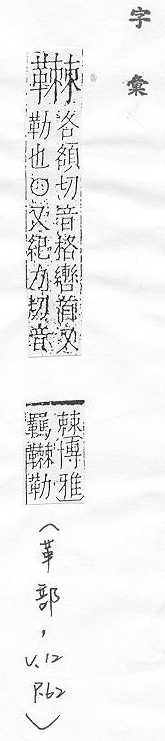 字彙
各額切音格轡首又
勒也○又紀力切音
棘博雅
羈勒
(革部,V.12 P.62)